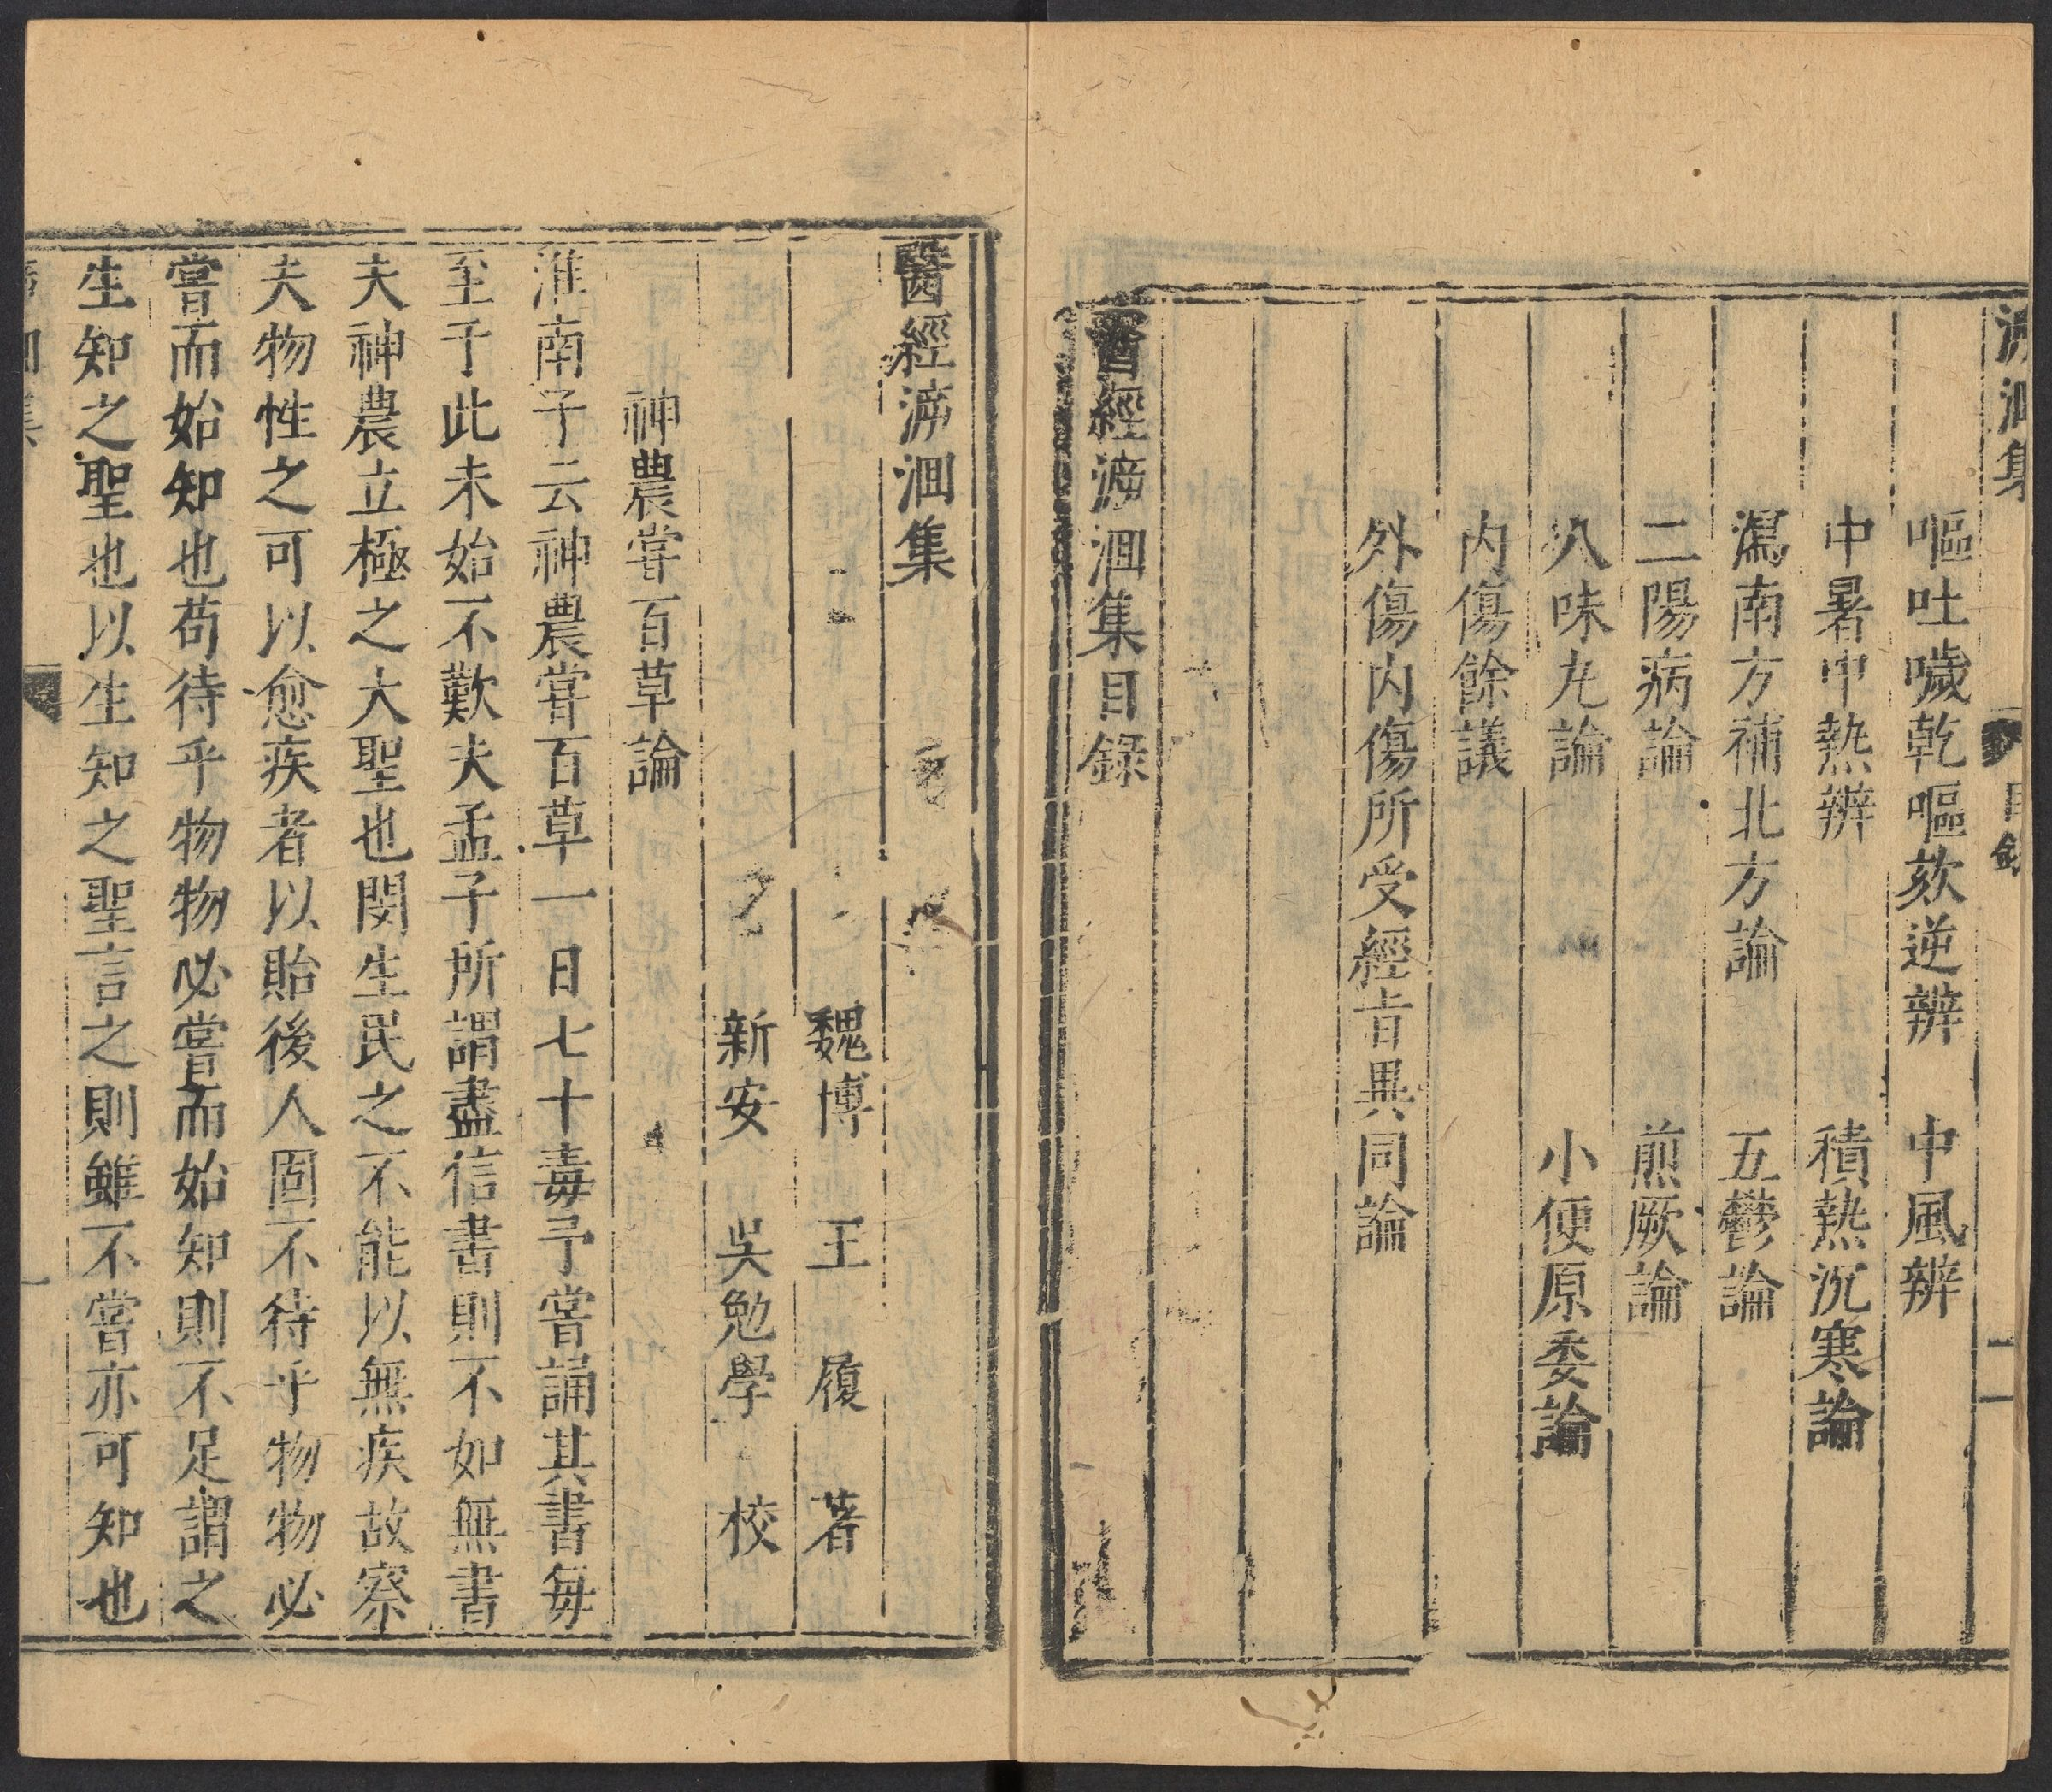 泝洄集
目錄
二
嘔吐噦乾嘔欬逆辨 中風辨
中暑中熱辨 積熱沉寒論
瀉南方補北方論 五鬱論
二陽病論 煎厥論
八味丸論 小便原委論
內傷餘議
外傷內傷所受經旨異同論
醫經泝洄集目錄
醫經泝洄集
魏博 王 履 著
新安 吳勉學 校
神農嘗百草論
淮南子云神農嘗百草一日七十毒予嘗誦其書每
至于此未始不歎夫孟子所謂盡信書則不如無書
夫神農立極之大聖也閔生民之不能以無疾故察
夫物性之可以愈疾者以貽後人固不待乎物物必
嘗而始知也苟待乎物物必嘗而始知則不足謂之
生知之聖也以生知之聖言之則雖不嘗亦可知也
泝洄集
一